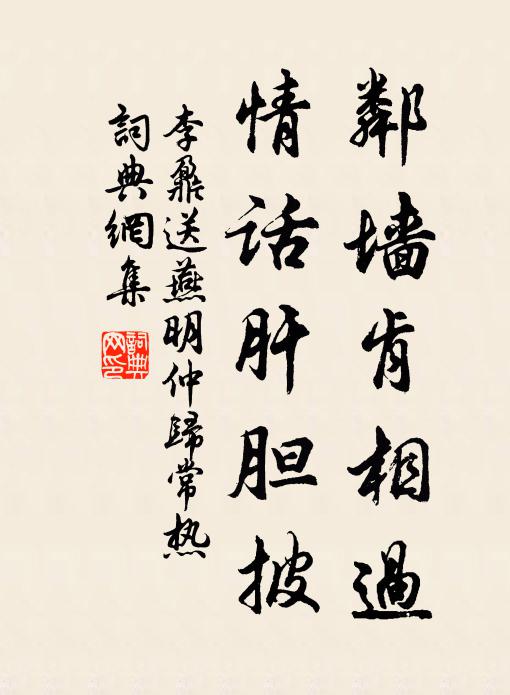 鄰墙肯相過
情话肝胆披
李鼐送燕明仲歸常热
詞典網集
詞典网印